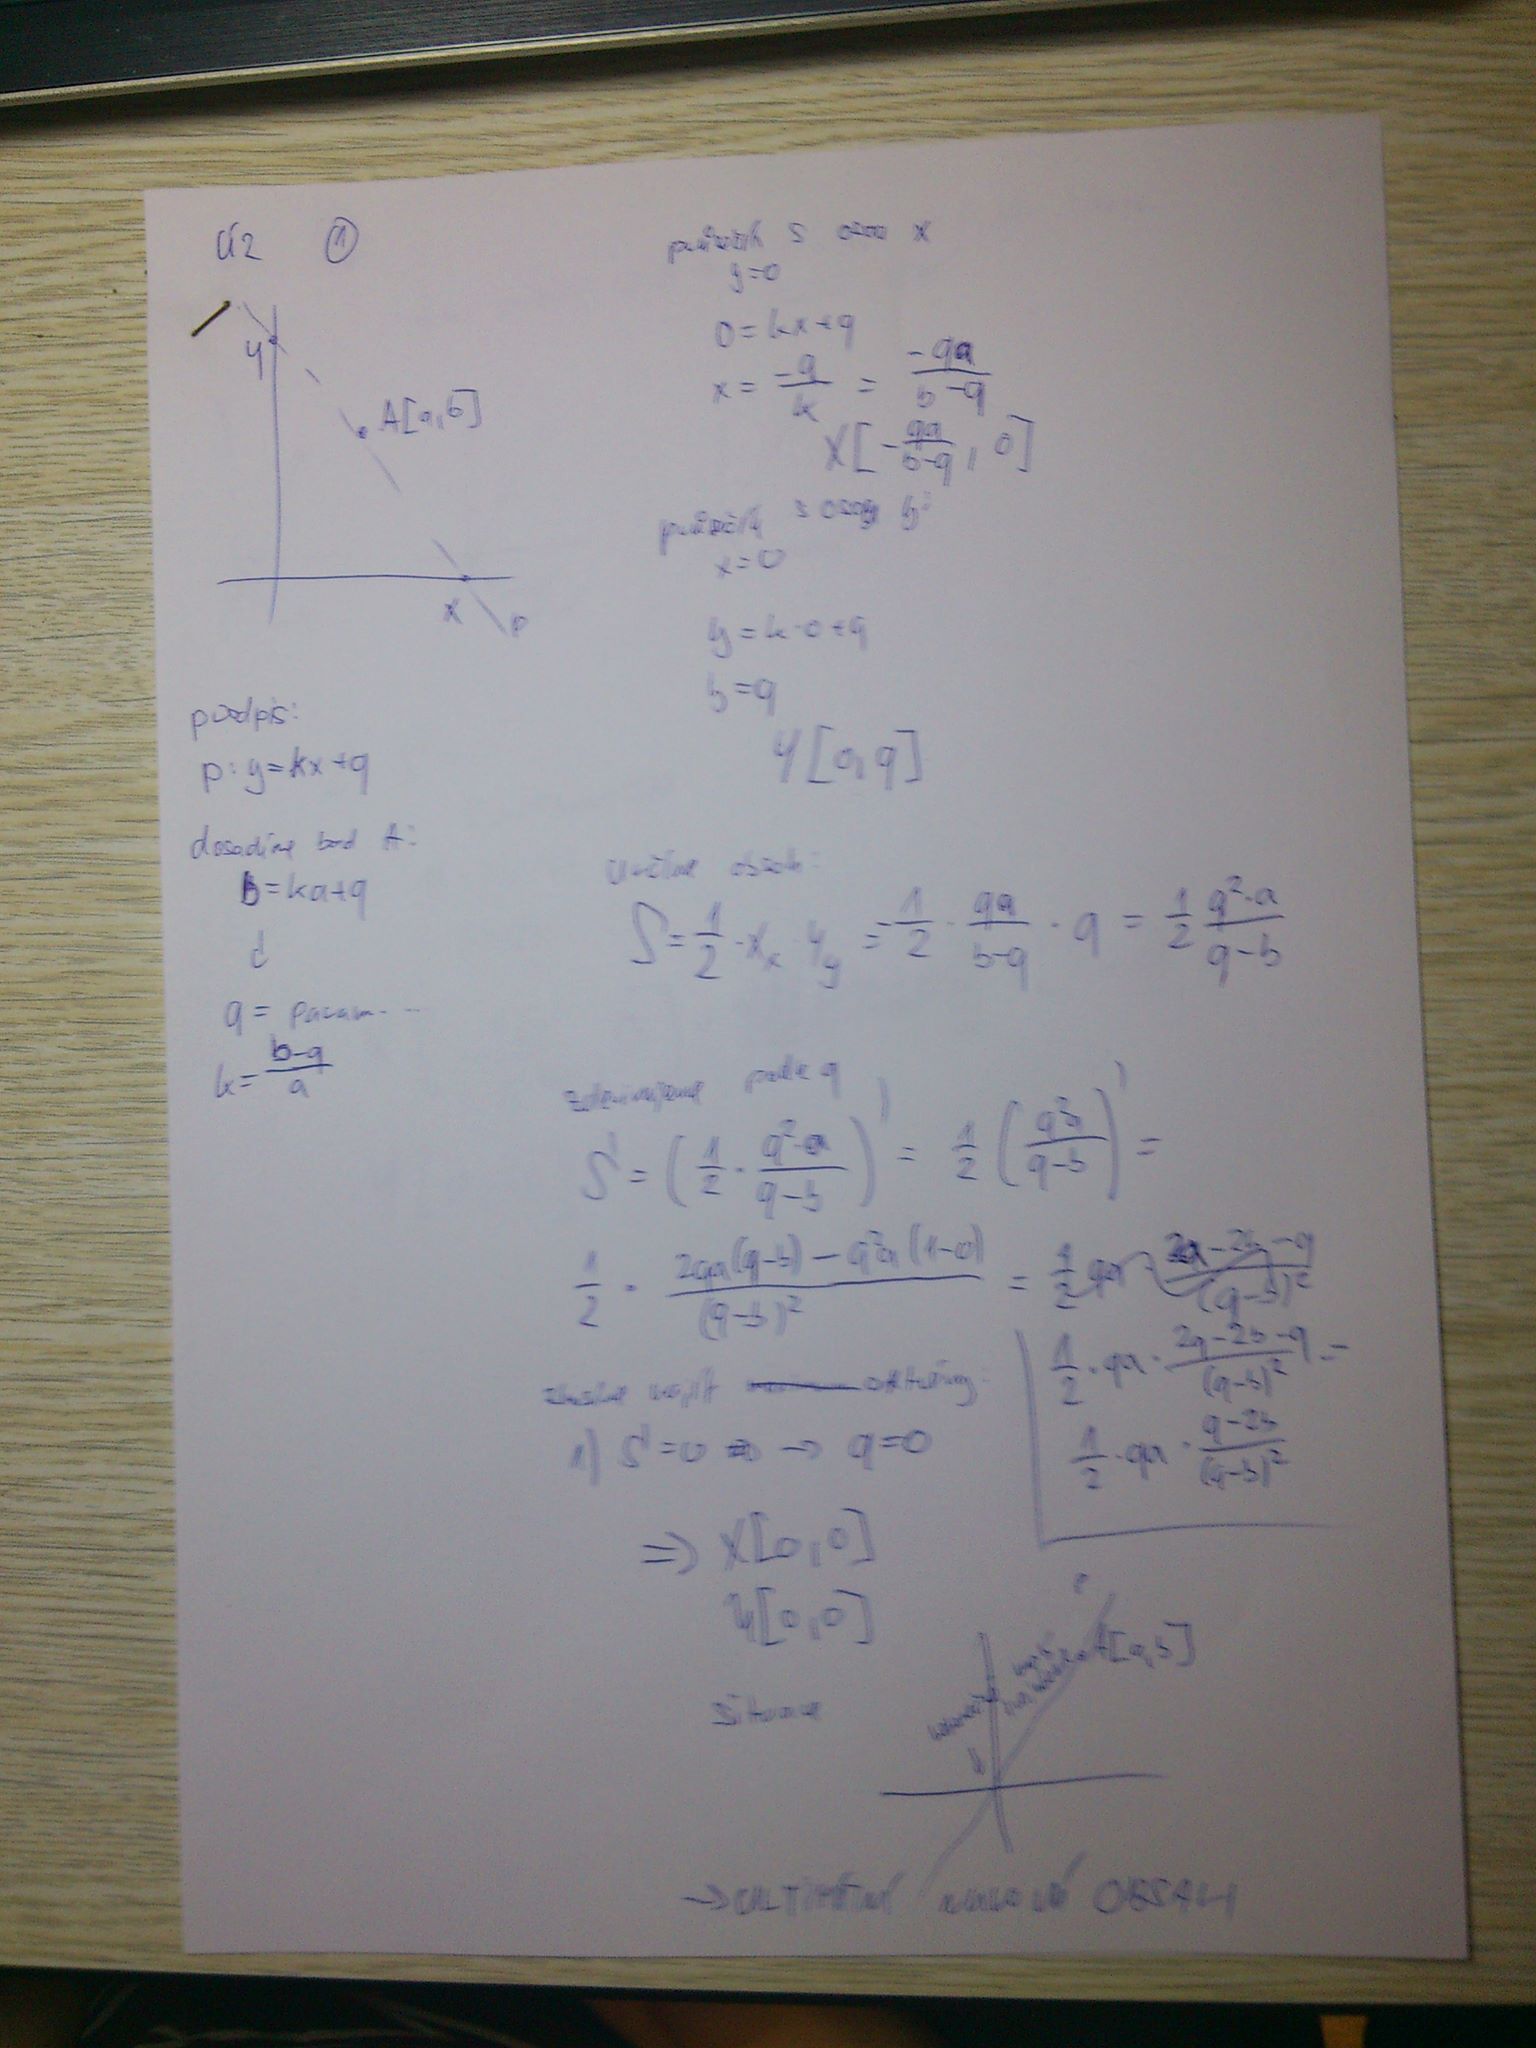 Ú2 ①
y
A[a,b]
x p
předpis:
p: y=kx+q
dosadíme bod A:
b=ka+q
q= param...
k= \frac{b-q}{a}
průsečík s osou x
y=0
0=kx+q
x = \frac{-q}{k} = \frac{-qa}{b-q}
X[-\frac{qa}{b-q}, 0]
průsečík s osou y:
x=0
y=k·0+q
y=q
Y[0,q]
určíme obsah:
S=\frac{1}{2}·X_x·Y_y = -\frac{1}{2} · \frac{qa}{b-q} · q = \frac{1}{2} \frac{q^2·a}{q-b}
zderivujeme podle q
S' = (\frac{1}{2} · \frac{q^2·a}{q-b})' = \frac{1}{2} (\frac{q^2a}{q-b})' =
\frac{1}{2} · \frac{2qa(q-b) - q^2a(1-0)}{(q-b)^2} = \frac{1}{2} qa
\frac{1}{2}·qa·\frac{2q-2b-q}{(q-b)^2} =
\frac{1}{2}·qa·\frac{q-2b}{(q-b)^2}
1) S'=0 → q=0
⇒ X[0,0]
Y[0,0]
situace
p
A[a,b]
OBSAH